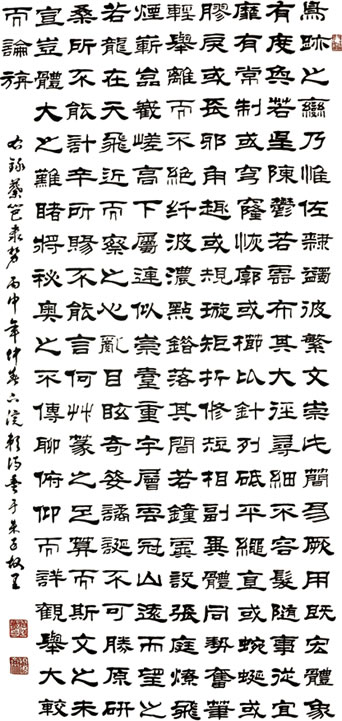 鳥跡之變乃惟佐隸蠲彼繁文崇此簡易厥用既宏體象
有度奐若星陳鬱若雲布其大徑尋細不容髮隨事從宜
靡有常制或穹窿恢廓或櫛比針列砥平繩直或蜿蜒或
膠戾或長邪角趣或規旋矩折修短相副異體同勢奮筆
輕舉離而不絕纖波濃點錯落其間若鐘虡設張庭燎飛
煙嶄嵓嶻嵯高下屬連似崇臺重宇層雲冠山遠而望之
若龍在天飛近而察之心亂目眩奇姿譎誕不可勝原研
桑所不能計宰所賜不能言何艸篆之足算而斯文之未
宣豈體大之難睹將秘奧之不傳聊俯仰而詳觀舉大較
而論旃
右錄蔡邕隸勢丙申年仲春